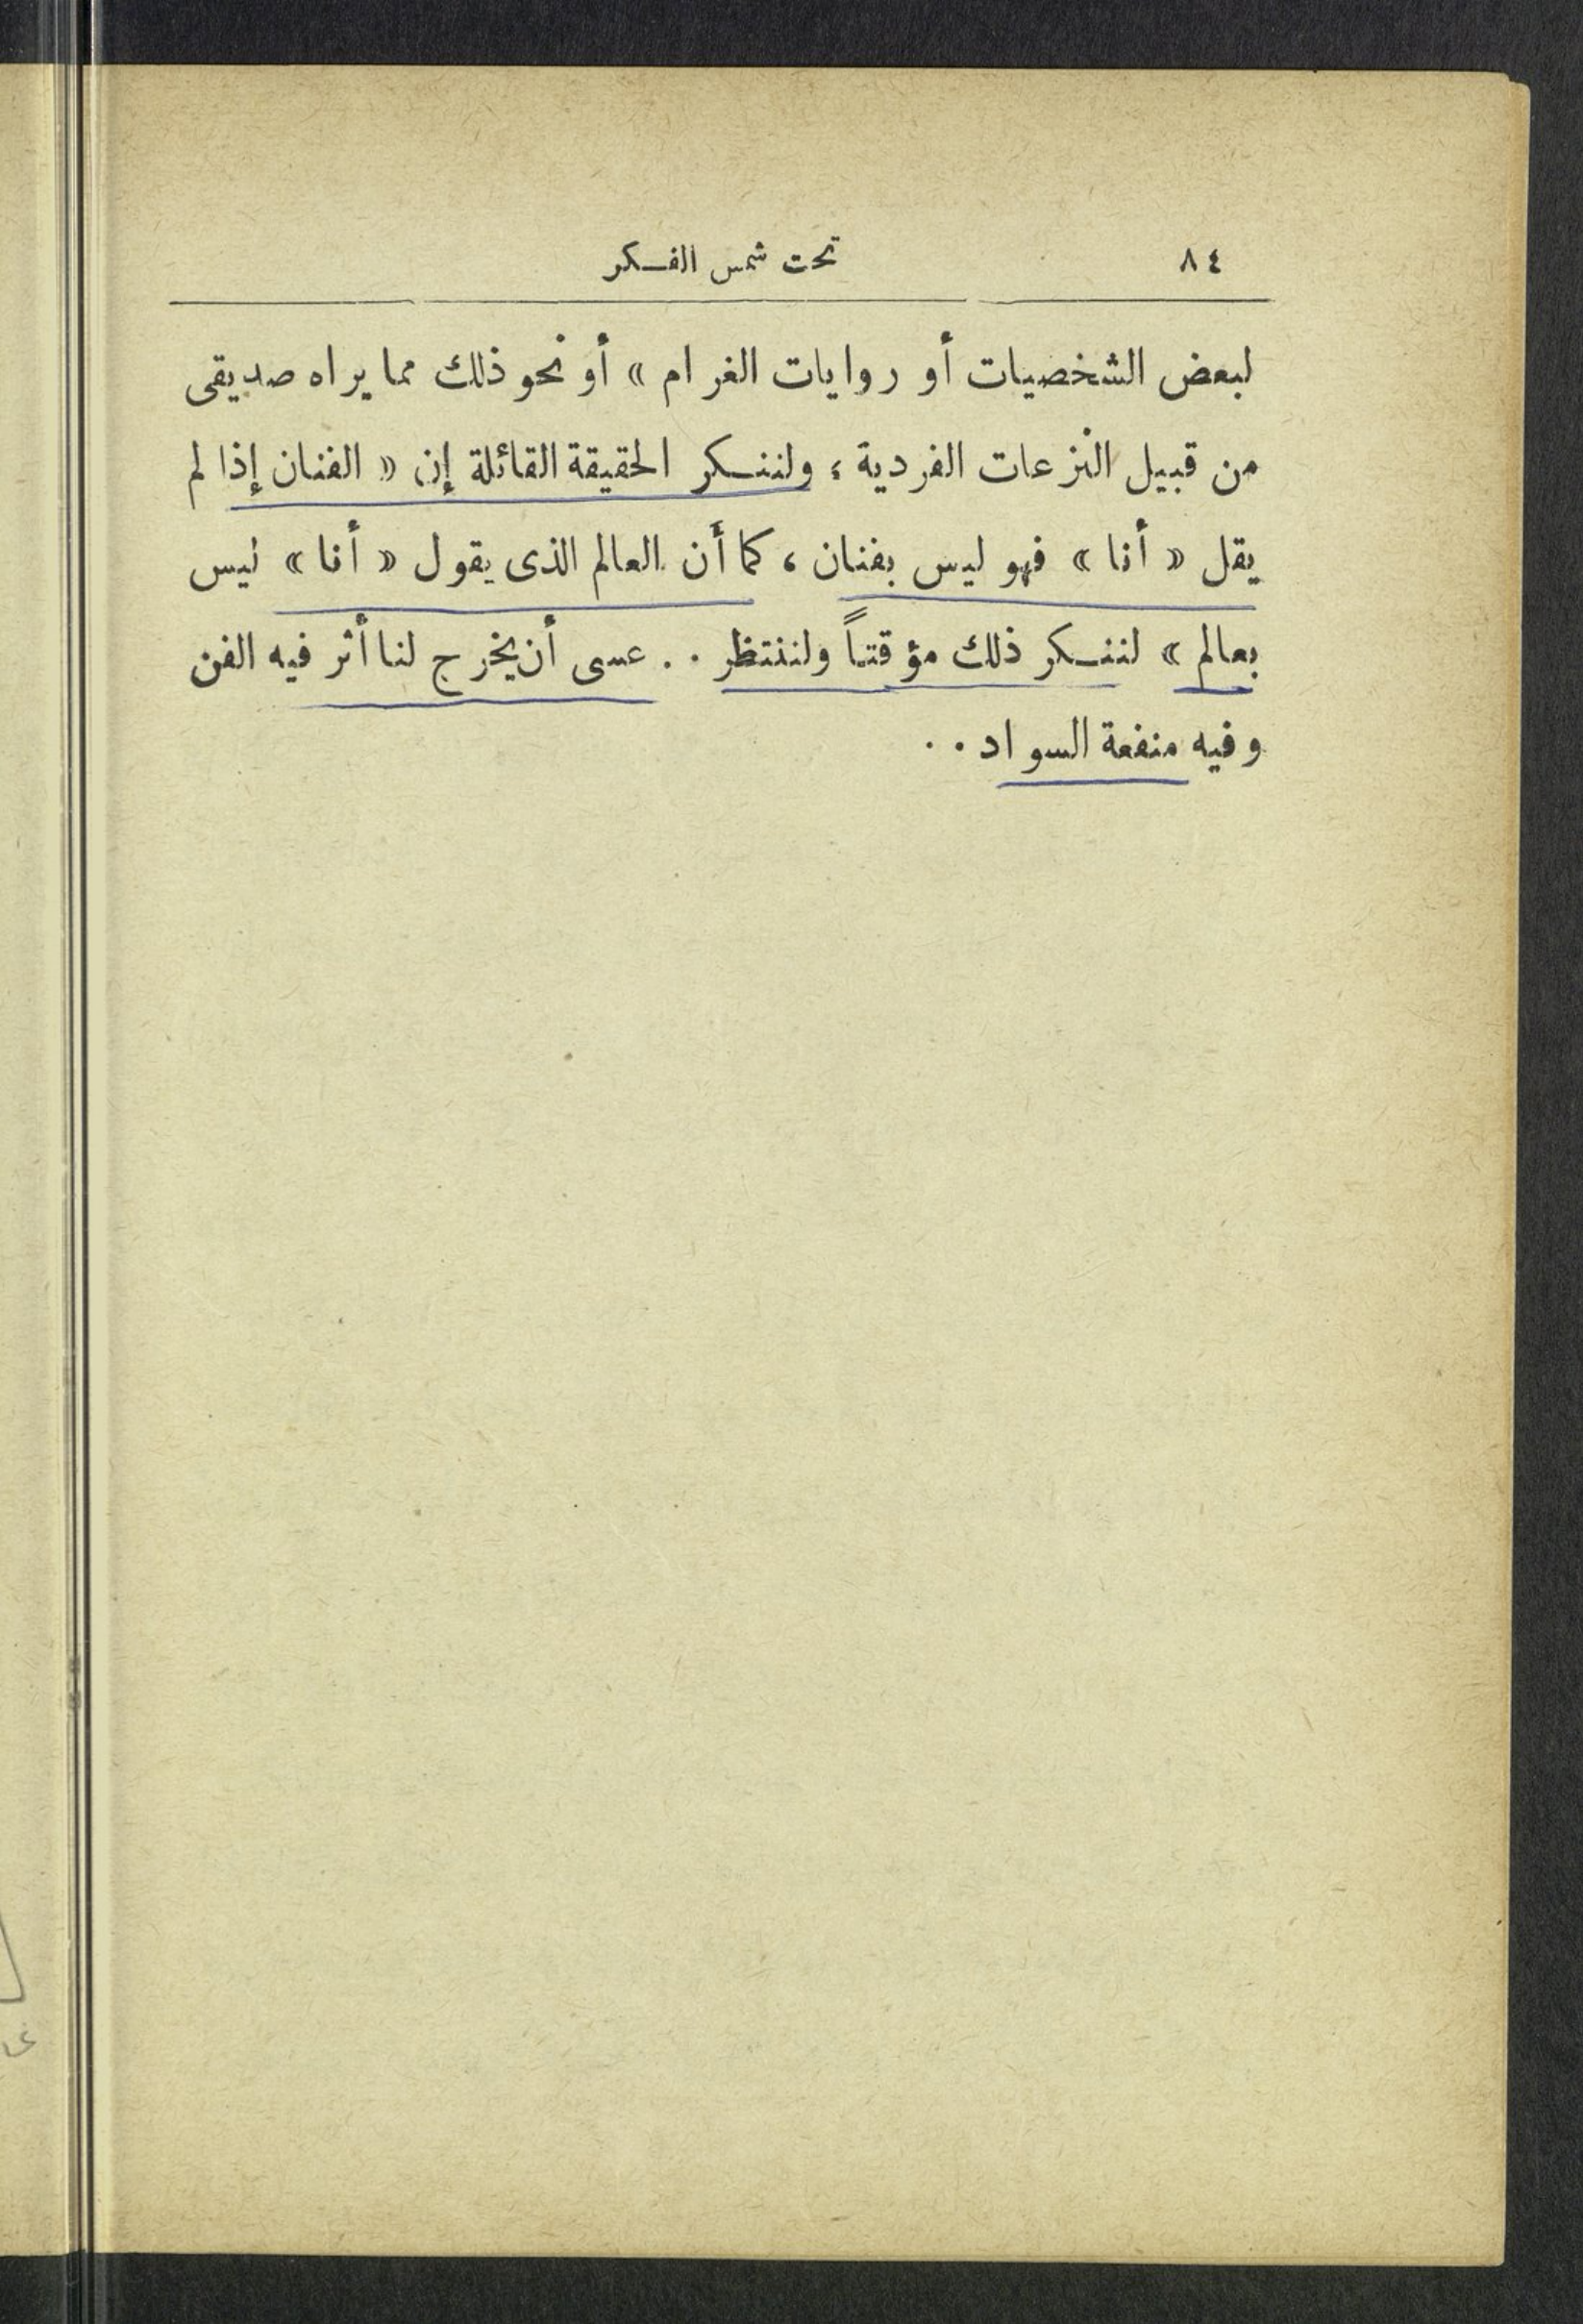 ٨٤ تحت شمس الفكر
لبعض الشخصيات أو روايات الغرام » أو نحو ذلك مما يراه صديقى
من قبيل النزعات الفردية ؛ ولننكر الحقيقة القائلة إن « الفنان إذا لم
يقل « أنا » فهو ليس بفنان ، كما أن العالم الذى يقول « أنا » ليس
بعالم » لننكر ذلك مؤقتاً ولننتظر . . عسى أن يخرج لنا أثر فيه الفن
وفيه منفعة السواد . .